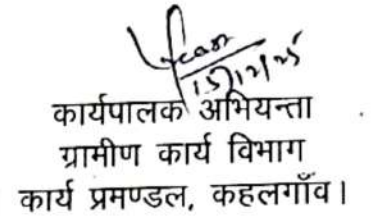 15/12/25
कार्यपालक अभियन्ता
ग्रामीण कार्य विभाग
कार्य प्रमण्डल, कहलगाँव।